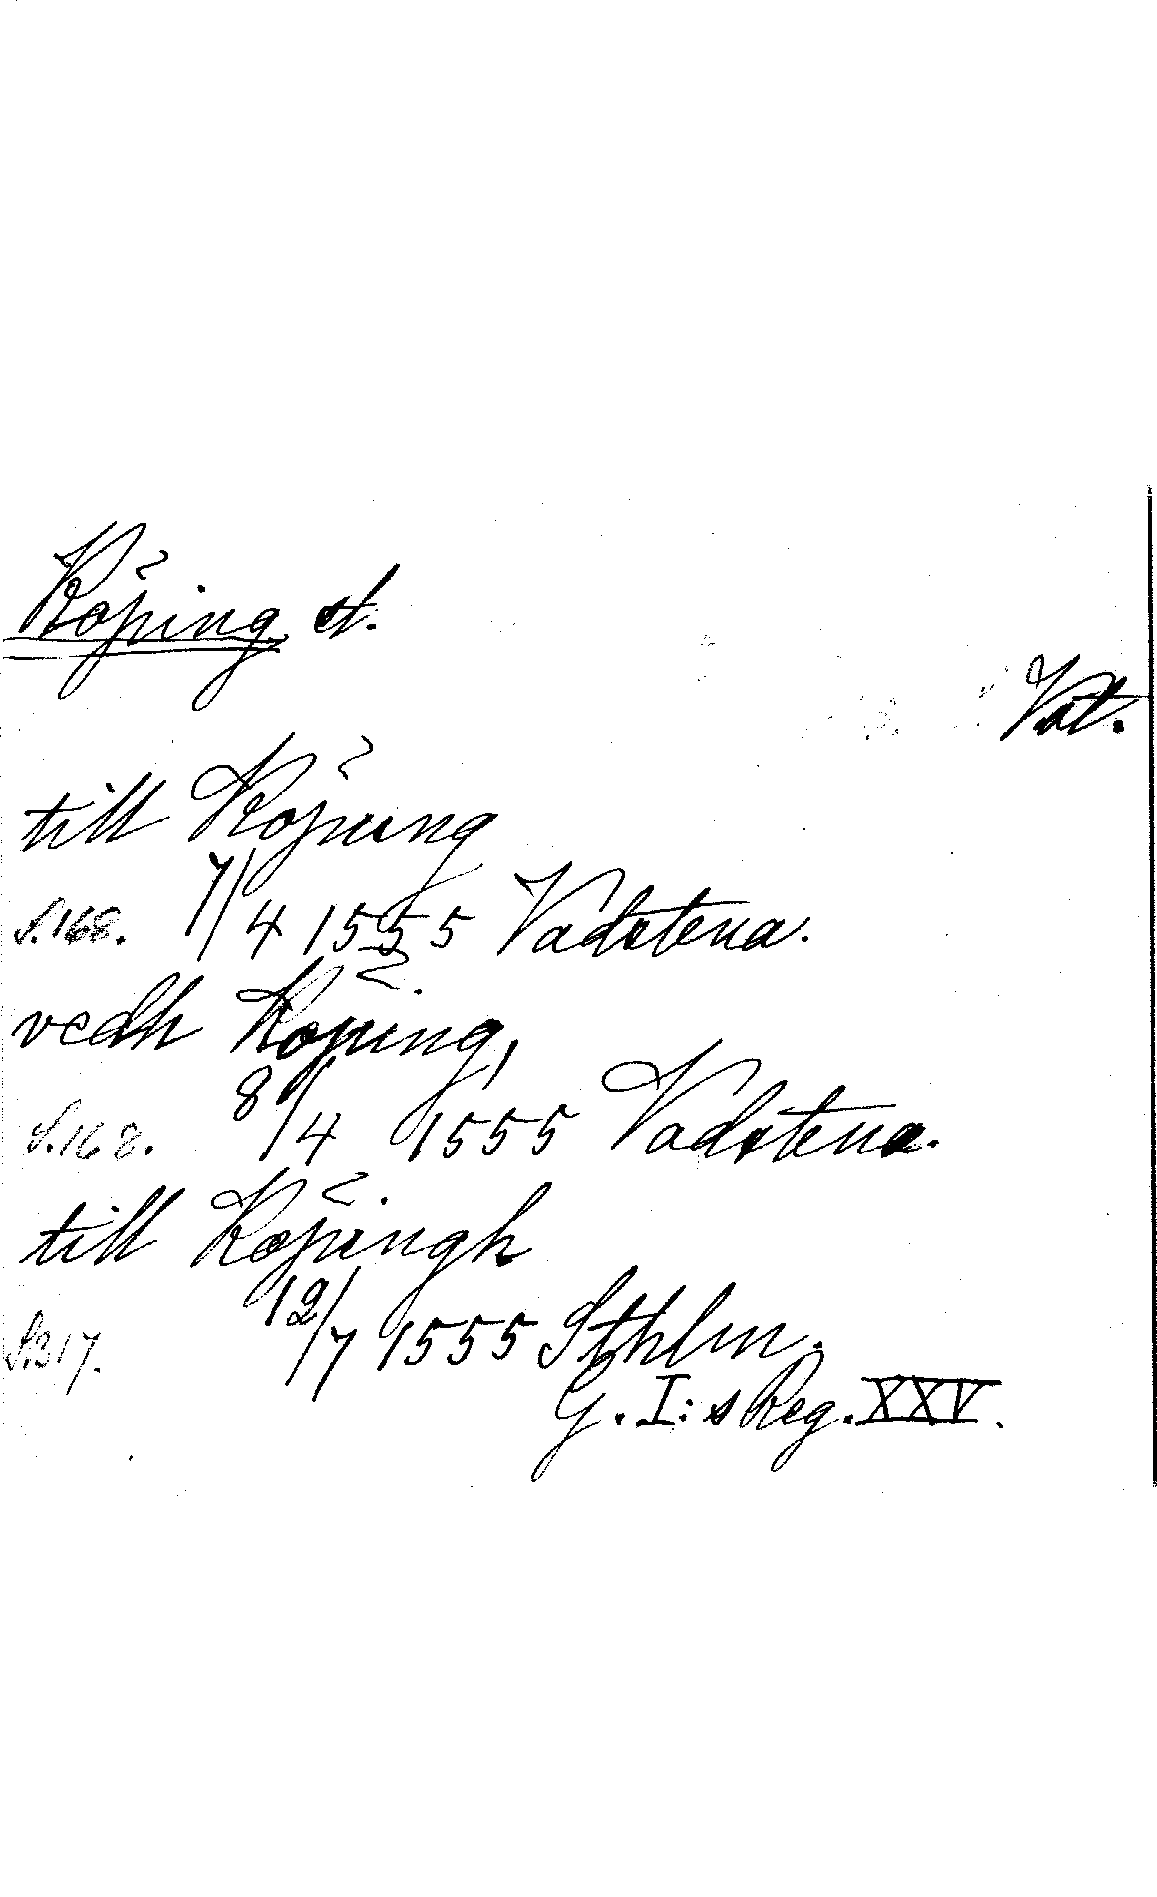 Köping st.
Vst.
till Köping
S.168. 7/4 1555 Vadstena.
vedh Köping,
S.168. 8/4 1555 Vadstena.
till Köpingh
S.317. 12/7 1555 Sthlm.
G.I:s Reg. XXV.